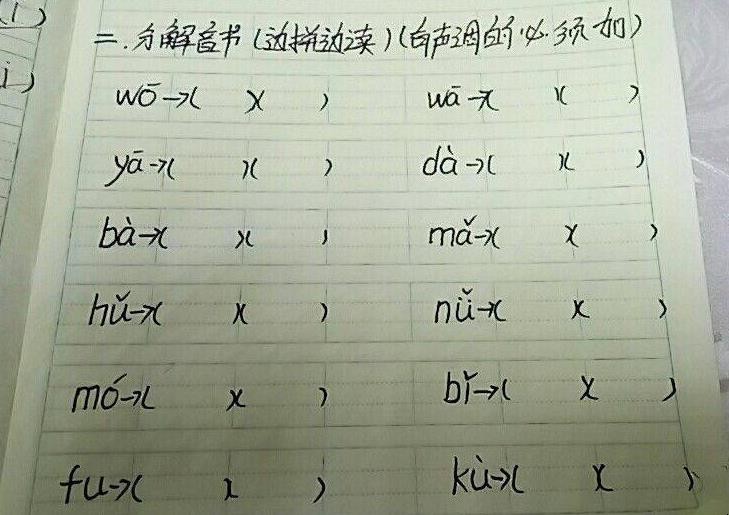 二.分解音节(边拼边读)(有声调的必须加)
wō→( )( ) wā→( )( )
yā→( )( ) dà→( )( )
bà→( )( ) mǎ→( )( )
hǔ→( )( ) nǚ→( )( )
mó→( )( ) bǐ→( )( )
fu→( )( ) kù→( )( )